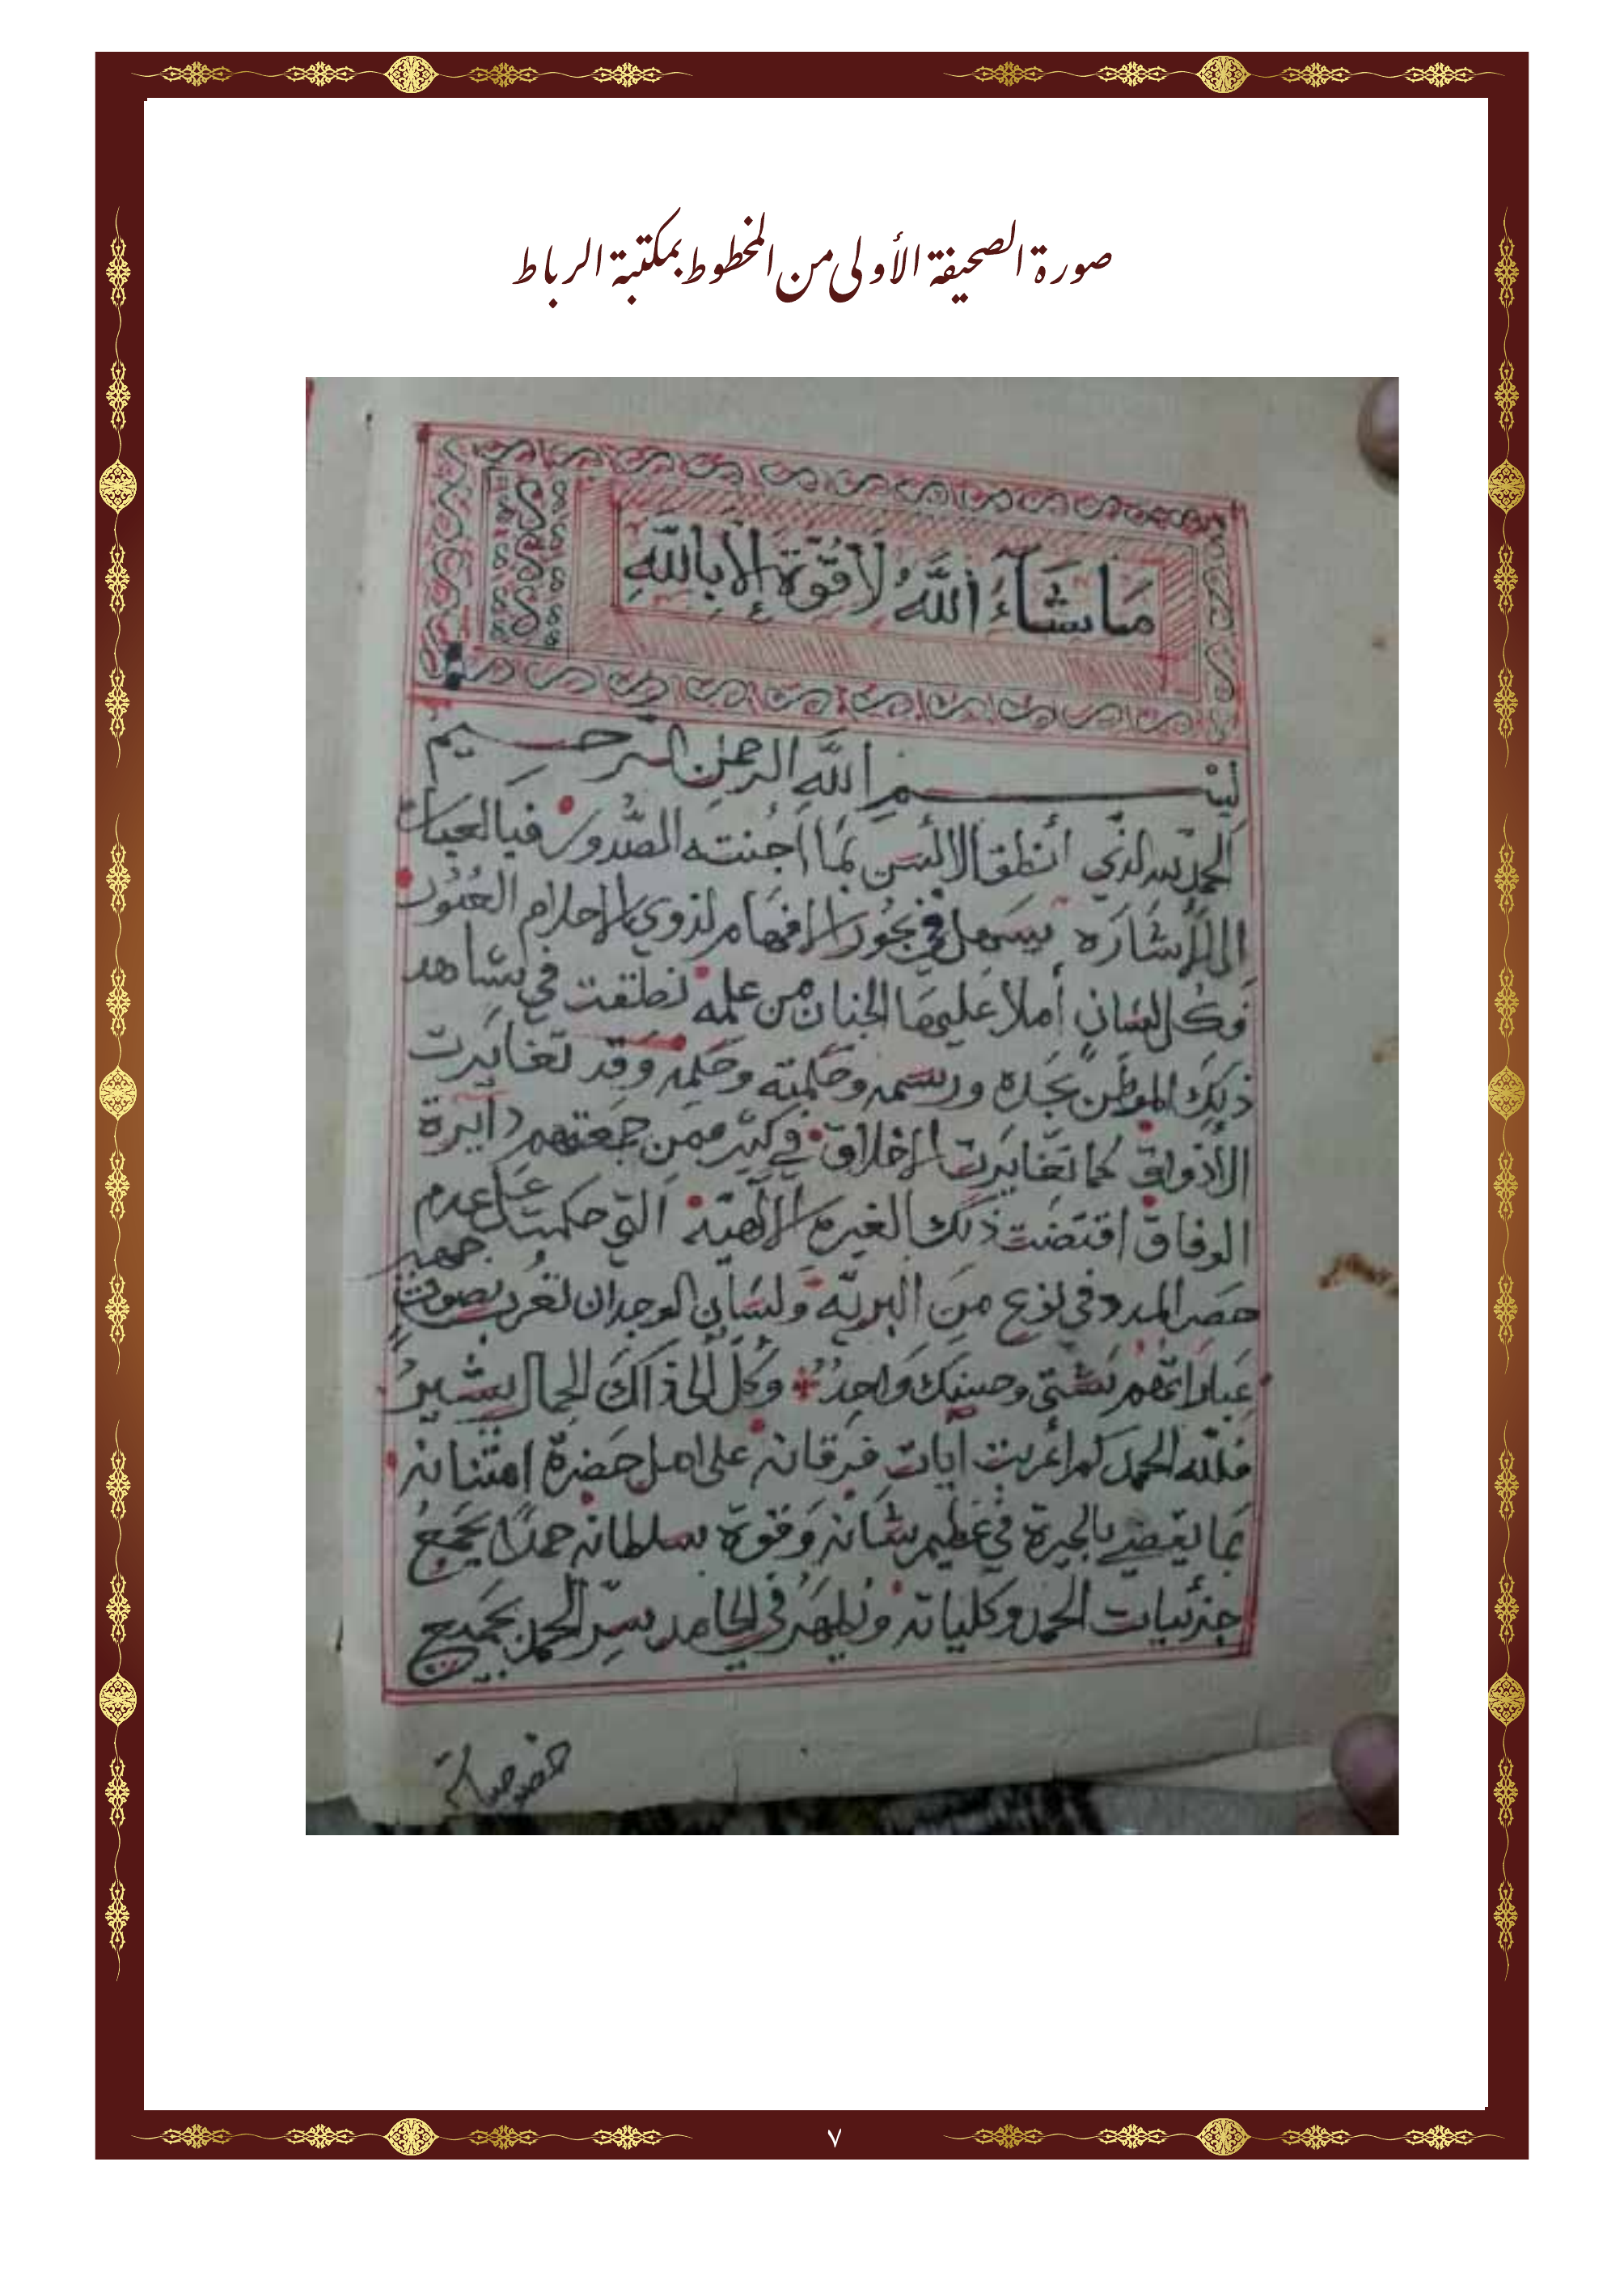 صورة الصحيفة الأولى من المخطوط بمكتبة الرباط
مَا شَآءَ اللَّهُ لَا قُوَّةَ إِلَّا بِاللَّهِ
بِسْمِ اللَّهِ الرحمن الرحيم
الحمد لله الذي أنطق الالسن بما أجنته الصُّدور فيا لعبارات
يسهل في بحُور الافهام لذوي الاحلام العُبُور
فكل لسان أملا عليها الجنان من علمه نطقت في مشاهد
ذلك الموطن بحده ورسمه وحكمته وحكمه وقد تغايرت
الأذواق كما تغايرت الاخلاق في كثير ممن جمعتهم دآيرة
الوفاق اقتضت ذلك الغيرة الالهية التي حكمت على عدم
حصر المدد في نوع من البرية ولسان الوجدان تعرب بصوت جهير
عباراتهم شتى وحسنك واحدُ وكل إلى ذاك الجمال يشير
فلله الحمد كم أعربت آيات فرقانه على اهل حضرة امتنانه
بما يقضي بالحيرة في عظيم شانه وقوة سلطانه حمدًا يجمع
جزئيات الحمد وكلياته ويُظهر في الحامد سِرّ الحمد بجميع
خصوصياته
٧